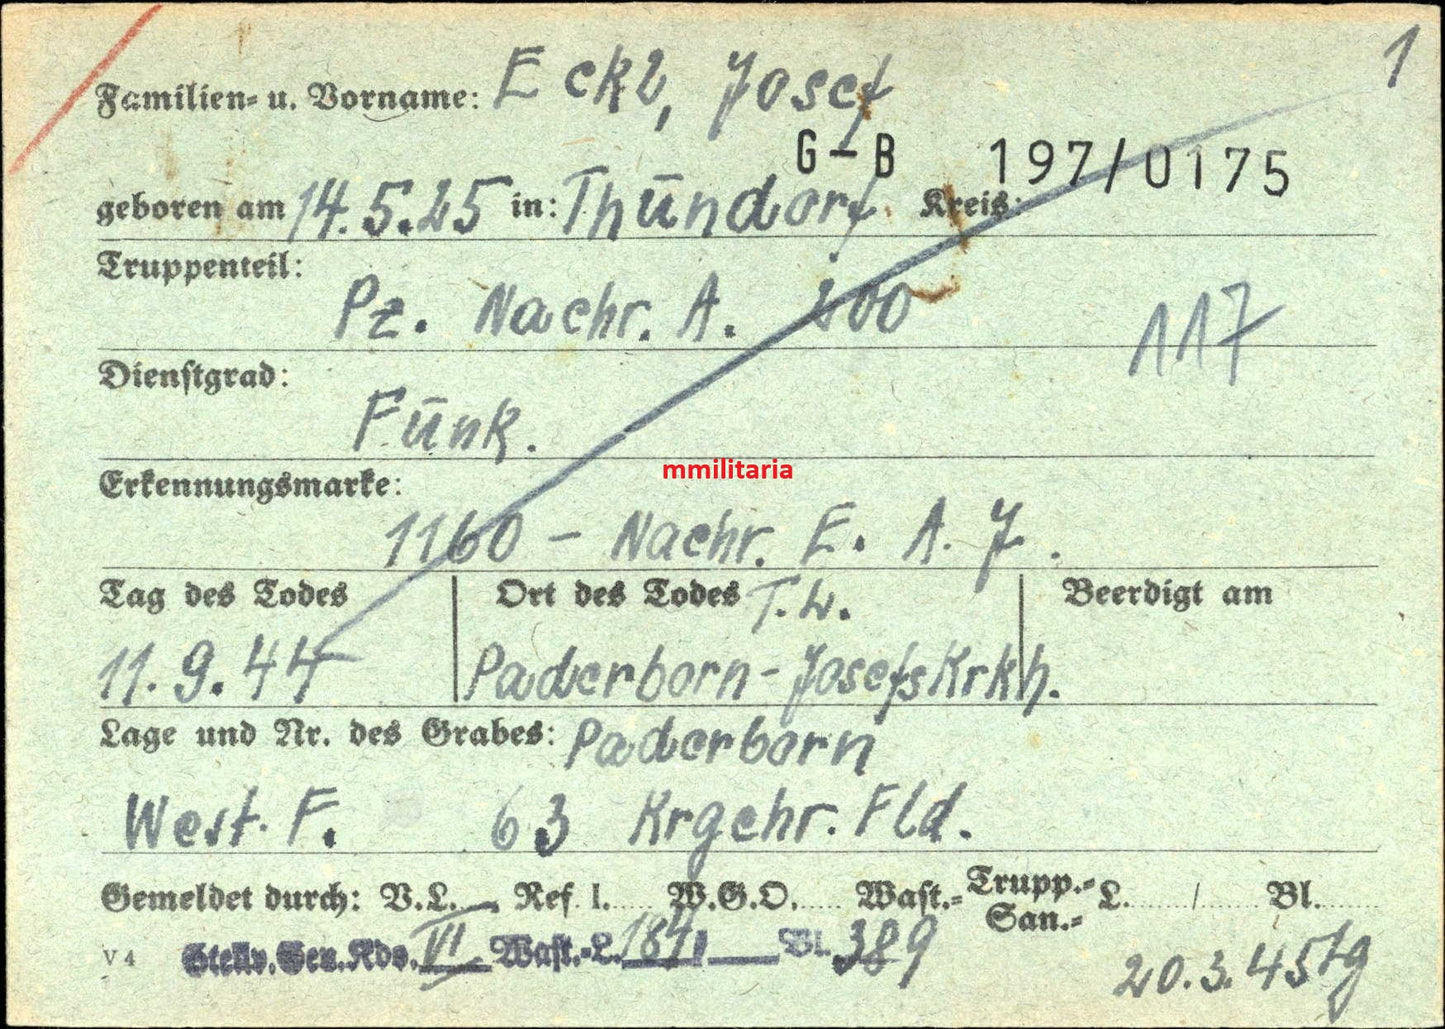 1
Familien- u. Vorname: Eckl, Josef
G-B 197/0175
geboren am 14.5.25 in: Thūndorf Kreis:
Truppenteil:
Pz. Nachr. A. 200
117
Dienstgrad:
Fūnk.
mmilitaria
Erkennungsmarke:
1160 - Nachr. E. A. 7.
Tag des Todes Ort des Todes T.L. Beerdigt am
11.9.44 Paderborn-JosefsKrkh.
Lage und Nr. des Grabes: Paderborn
West. F. 63 Krgehr. Fld.
Gemeldet durch: V.L. Ref. I. W.G.O. Wast.- Trupp.- San.- L. / Bl.
V 4 Stellv. Gen. Kdo. VI Wast.-L. 184/ Bl. 389
20.3.45